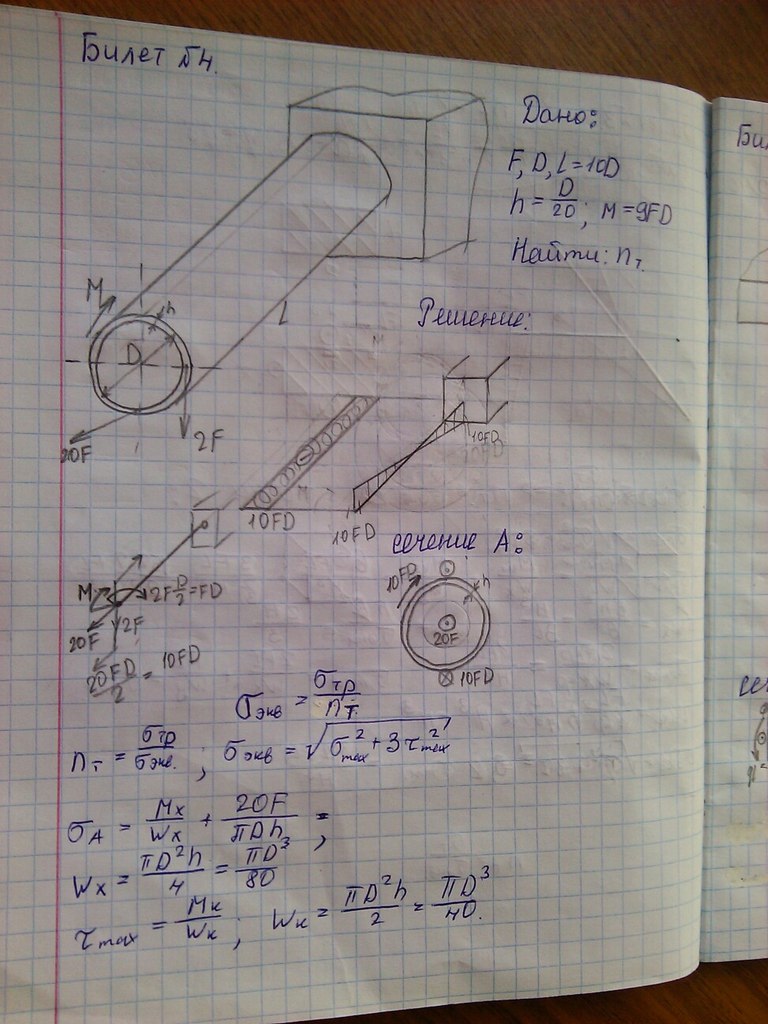 Билет №4.
Дано:
F, D, l=10D
h = D/20; M=9FD
Найти: nт.
Решение:
M
h
D
l
20F
2F
10FD
10FD
10FD
сечение А:
M
2F D/2 = FD
20F
2F
20FD/2 = 10FD
10FD
h
20F
10FD
σэкв = σтр/nт
nт = σтр/σэкв. ; σэкв = √(σmax² + 3τmax²)
σA = Mx/Wx + 20F/πDh = ;
Wx = πD²h/4 = πD³/80
τmax = Mк/Wк ; Wк = πD²h/2 = πD³/40.
Би
се